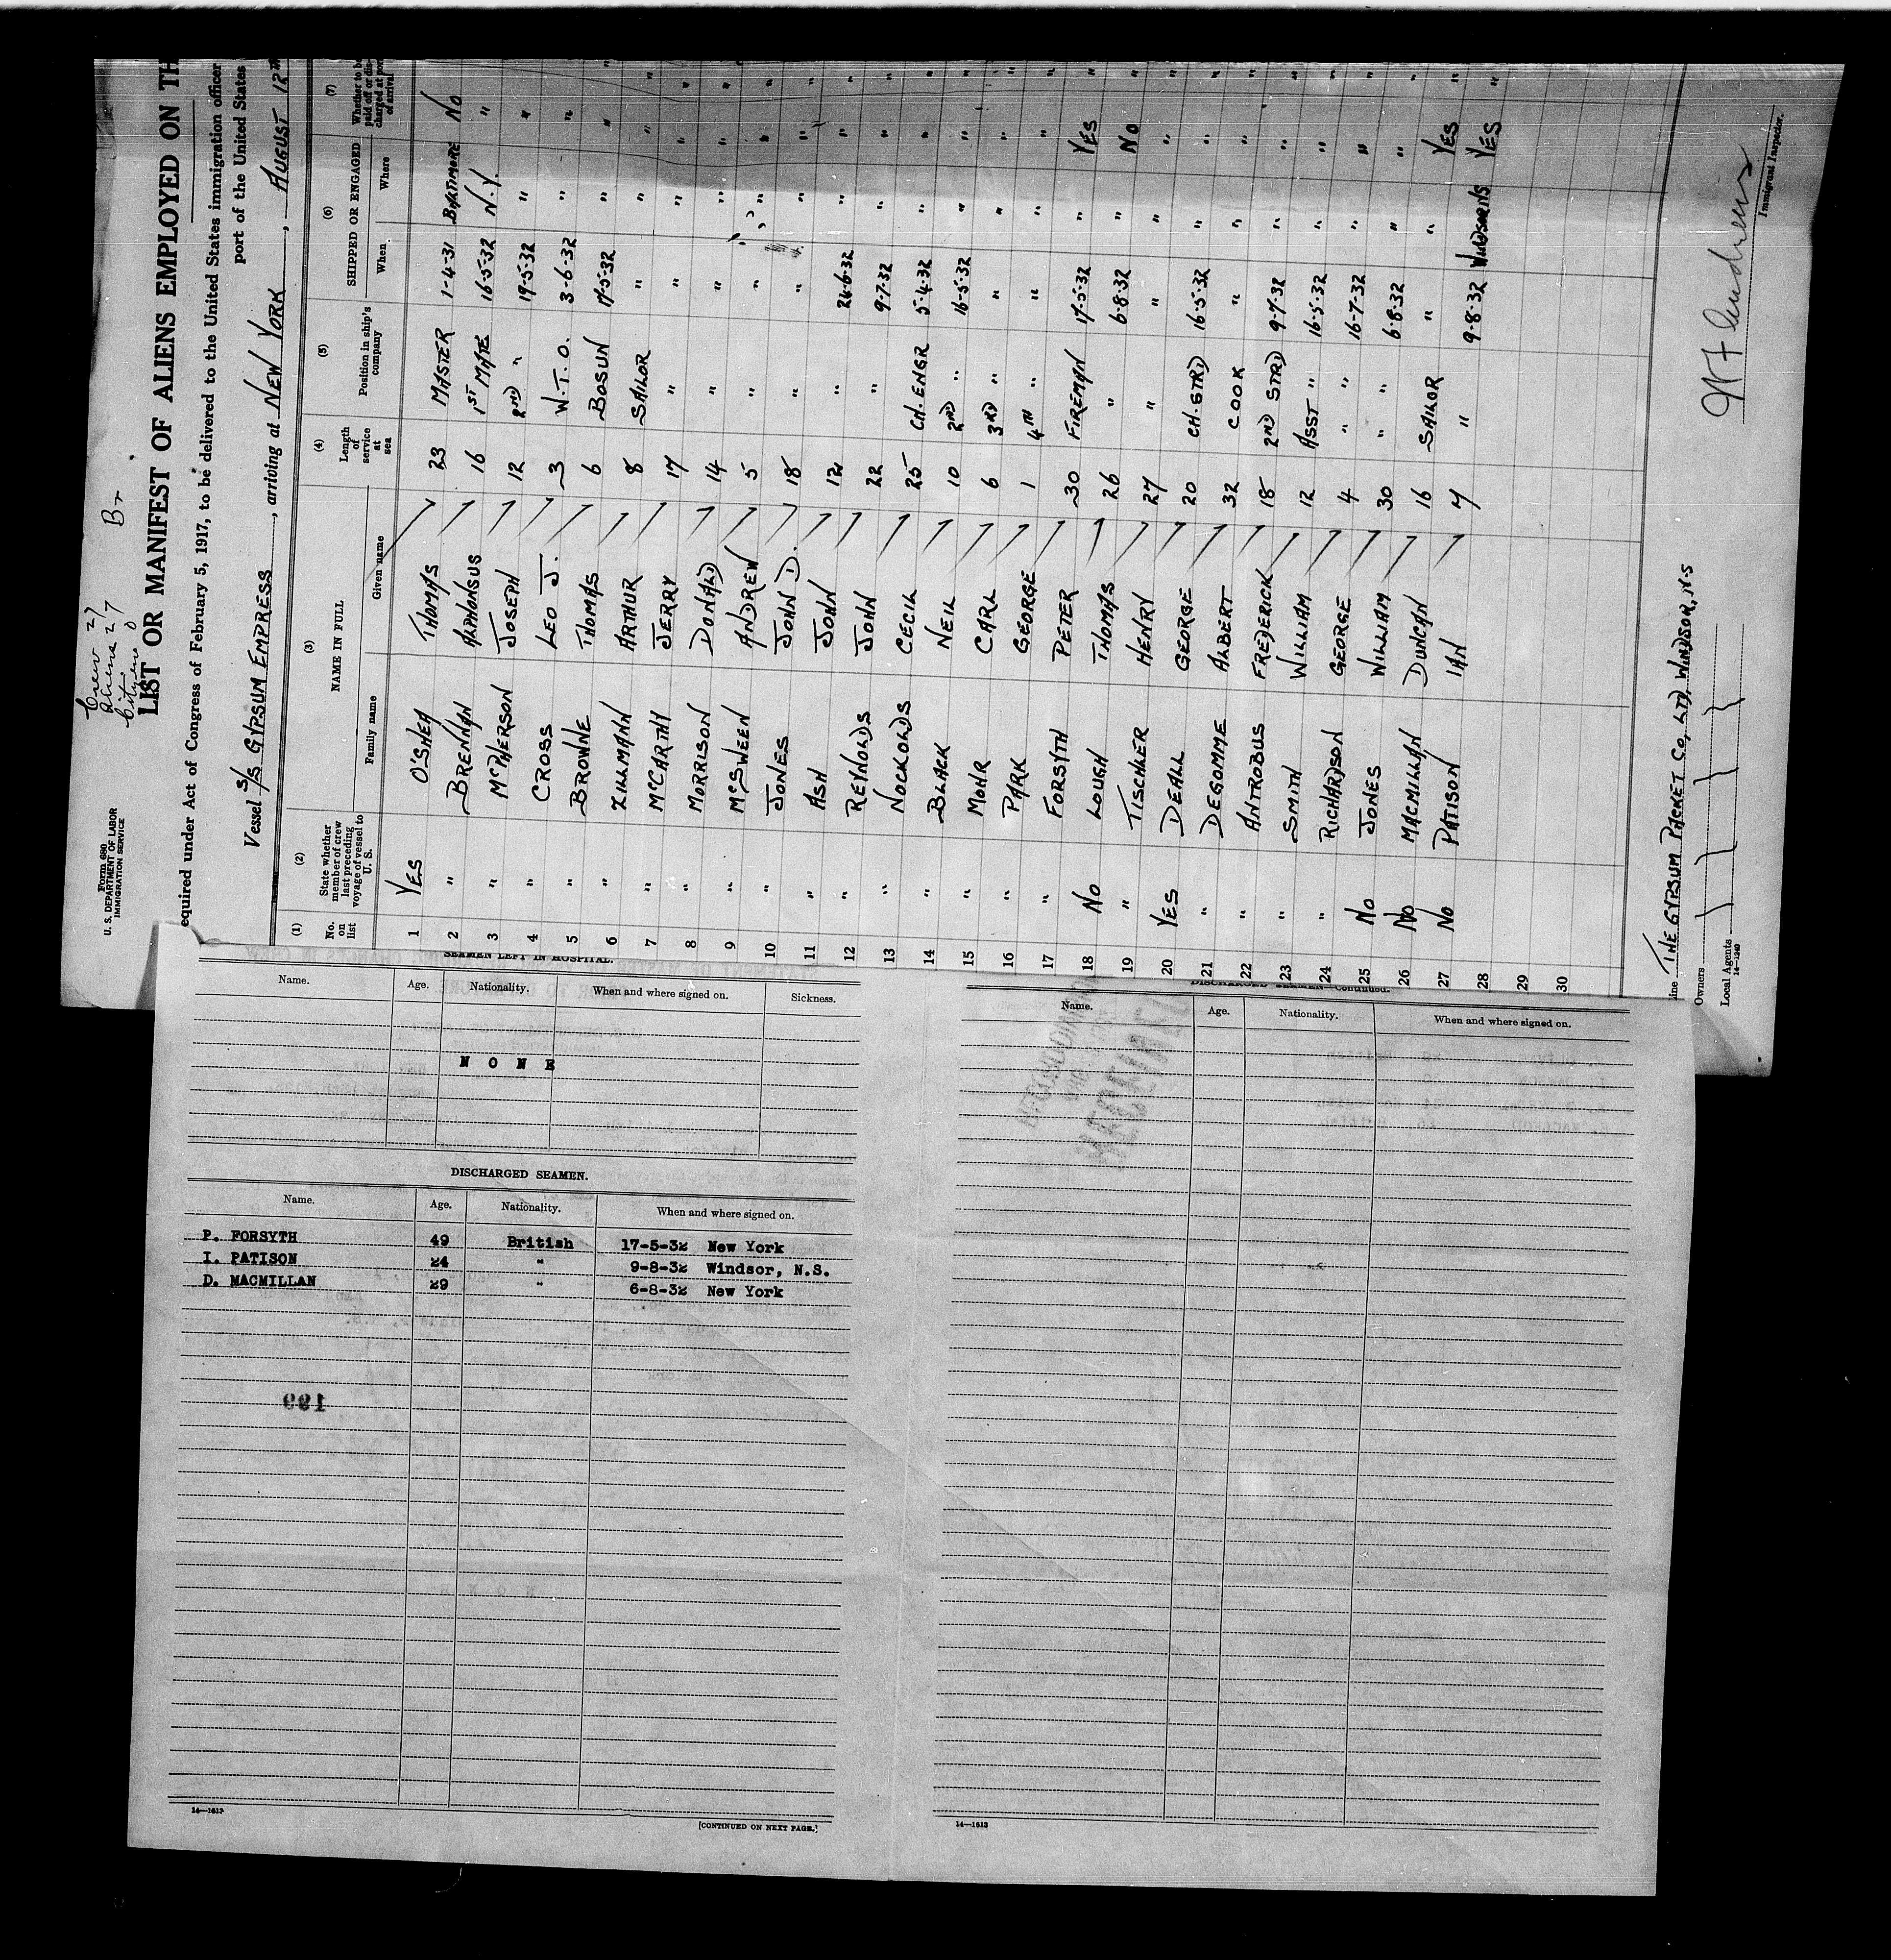 Crew 27
Aliens 27
Citizens 0
Br
Form 680
U. S. DEPARTMENT OF LABOR
IMMIGRATION SERVICE
LIST OR MANIFEST OF ALIENS EMPLOYED ON TH
equired under Act of Congress of February 5, 1917, to be delivered to the United States immigration officer
port of the United States
Vessel S/S GYPSUM EMPRESS, arriving at NEW YORK, AUGUST 12TH
(1) (2) (3) (4) (5) (6) (7)
No. on list
State whether member of crew last preceding voyage of vessel to U. S.
NAME IN FULL
Family name Given name
Length of service at sea
Position in ship's company
SHIPPED OR ENGAGED
When Where
Whether to be paid off or discharged at port of arrival
1 YES O'SHEA THOMAS 23 MASTER 1-4-31 BALTIMORE NO
2 " BRENNAN ALPHONSUS 16 1ST MATE 16-5-32 N.Y. "
3 " McPHERSON JOSEPH 12 2ND " 19-5-32 " "
4 " CROSS LEO J. 3 W.T.O. 3-6-32 " "
5 " BROWNE THOMAS 6 BOSUN 17-5-32 " "
6 " ZILLMANN ARTHUR 8 SAILOR " " "
7 " McCARTHY JERRY 17 " " " "
8 " MORRISON DONALD 14 " " " "
9 " McSWEEN ANDREW 5 " " " "
10 " JONES JOHN D. 18 " " " "
11 " ASH JOHN 12 " 24-6-32 " "
12 " REYNOLDS JOHN 22 " 9-7-32 " "
13 " NOCKOLDS CECIL 25 CH. ENGR 5-4-32 " "
14 " BLACK NEIL 10 2ND " 16-5-32 " "
15 " MOHR CARL 6 3RD " " " "
16 " PARK GEORGE 1 4TH " " " "
17 " FORSYTH PETER 30 FIREMAN 17-5-32 " YES
18 NO LOUGH THOMAS 26 " 6-8-32 " NO
19 " TISCHLER HENRY 27 " " " "
20 YES DEALL GEORGE 20 CH. STRD 16-5-32 " "
21 " DEGOMME ALBERT 32 COOK " " "
22 " ANTROBUS FREDERICK 18 2ND STRD 9-7-32 " "
23 " SMITH WILLIAM 12 ASST " 16-5-32 " "
24 " RICHARDSON GEORGE 4 " " 16-7-32 " "
25 NO JONES WILLIAM 30 " " 6-8-32 " "
26 NO MACMILLAN DUNCAN 16 SAILOR " " YES
27 NO PATISON IAN 4 " 9-8-32 WINDSOR NS YES
28
29
30
ine THE GYPSUM PACKET CO, LTD, WINDSOR, N.S
Owners
Local Agents
14—1240
Immigrant Inspector.
SEAMEN LEFT IN HOSPITAL.
Name. Age. Nationality. When and where signed on. Sickness.
NONE
DISCHARGED SEAMEN.
Name. Age. Nationality. When and where signed on.
P. FORSYTH 49 British 17-5-32 New York
I. PATISON 24 " 9-8-32 Windsor, N.S.
D. MACMILLAN 29 " 6-8-32 New York
199
14—1613
[CONTINUED ON NEXT PAGE.]
DISCHARGED SEAMEN—Continued.
Name. Age. Nationality. When and where signed on.
14—1613